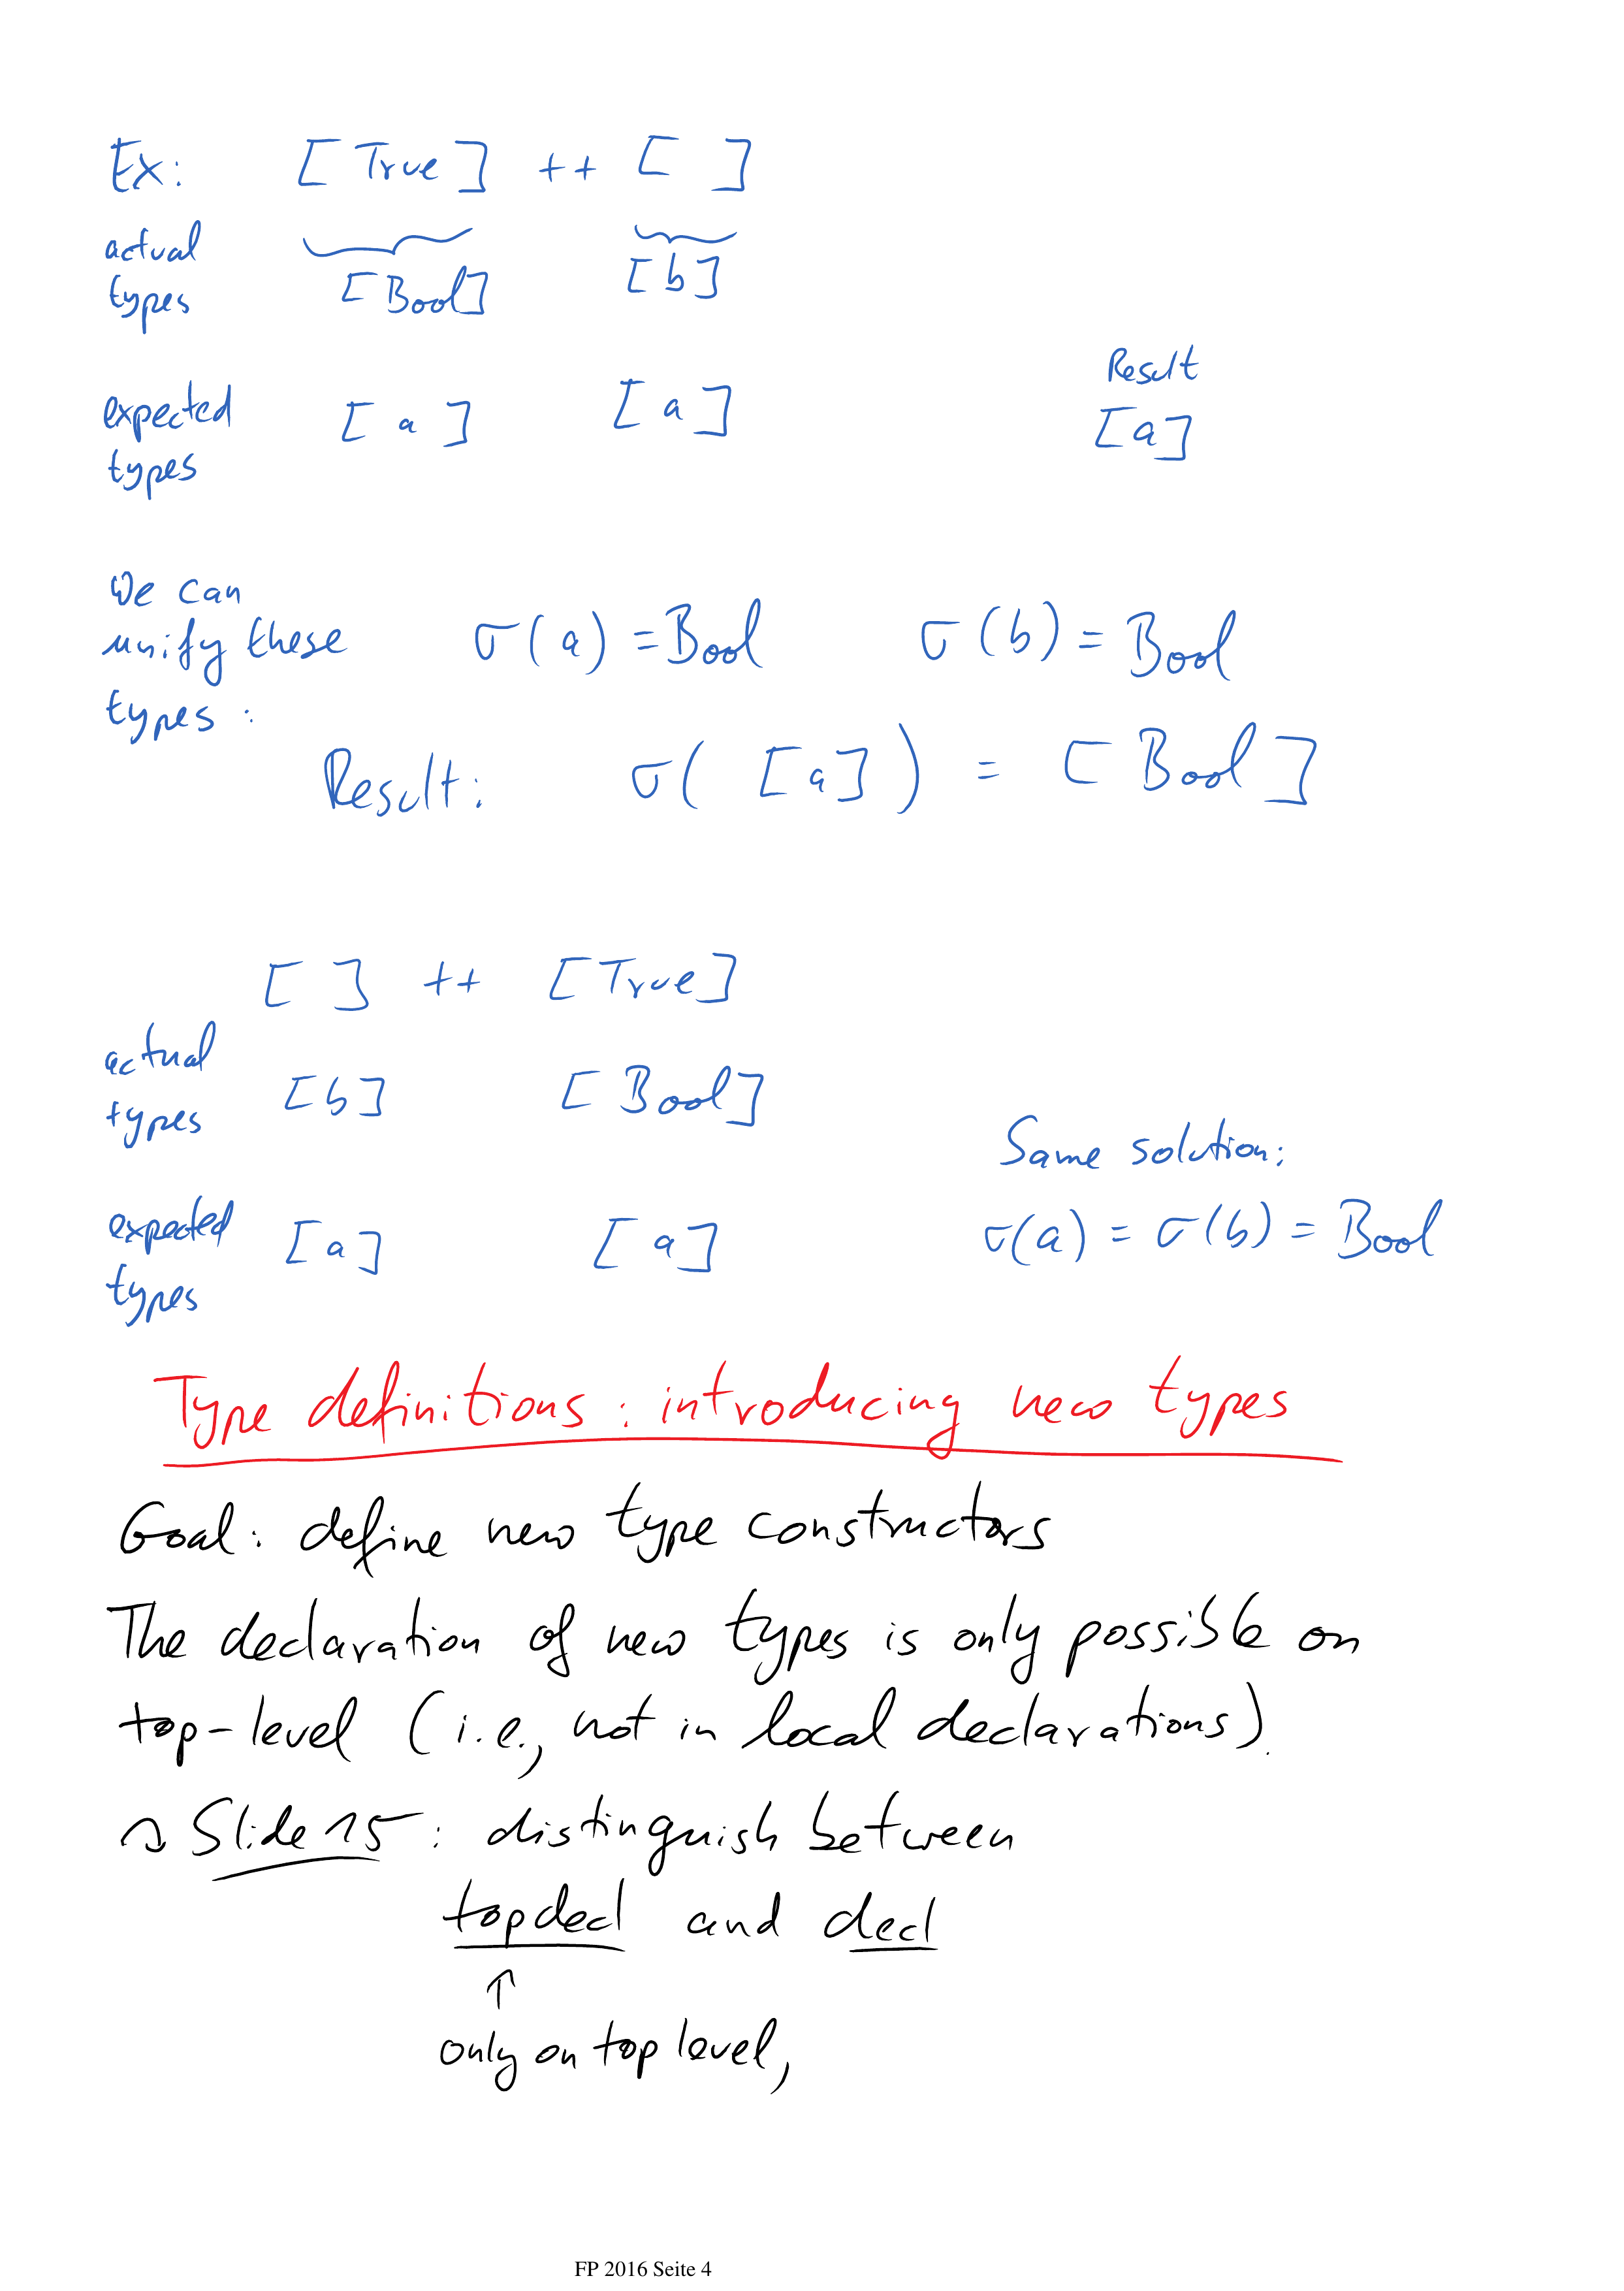 Ex: [True] ++ [ ]
actual types [Bool] [b]
Result
expected types [a] [a] [a]
We can
unify these σ(a) = Bool σ(b) = Bool
types:
Result: σ([a]) = [Bool]
[ ] ++ [True]
actual types [b] [Bool]
Same solution:
expected types [a] [a] σ(a) = σ(b) = Bool
Type definitions: introducing new types
Goal: define new type constructors
The declaration of new types is only possible on
top-level (i.e., not in local declarations).
↷ Slide 15: distinguish between
topdecl and decl
↑
only on top level,
FP 2016 Seite 4